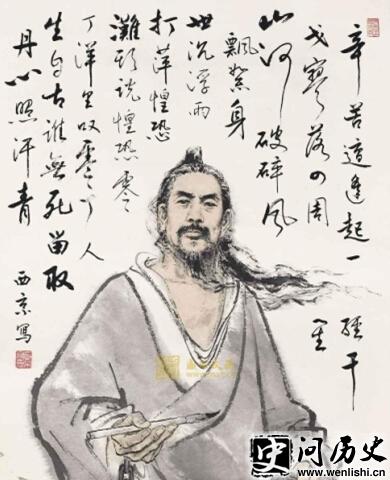 辛苦遭逢起一經干
戈寥落四周星
山河破碎風
飄絮身
世沉浮雨
打萍惶恐
灘頭說惶恐零
丁洋里嘆零丁人
生自古誰無死留取
丹心照汗青
西京寫
史问历史
www.wenlishi.cn